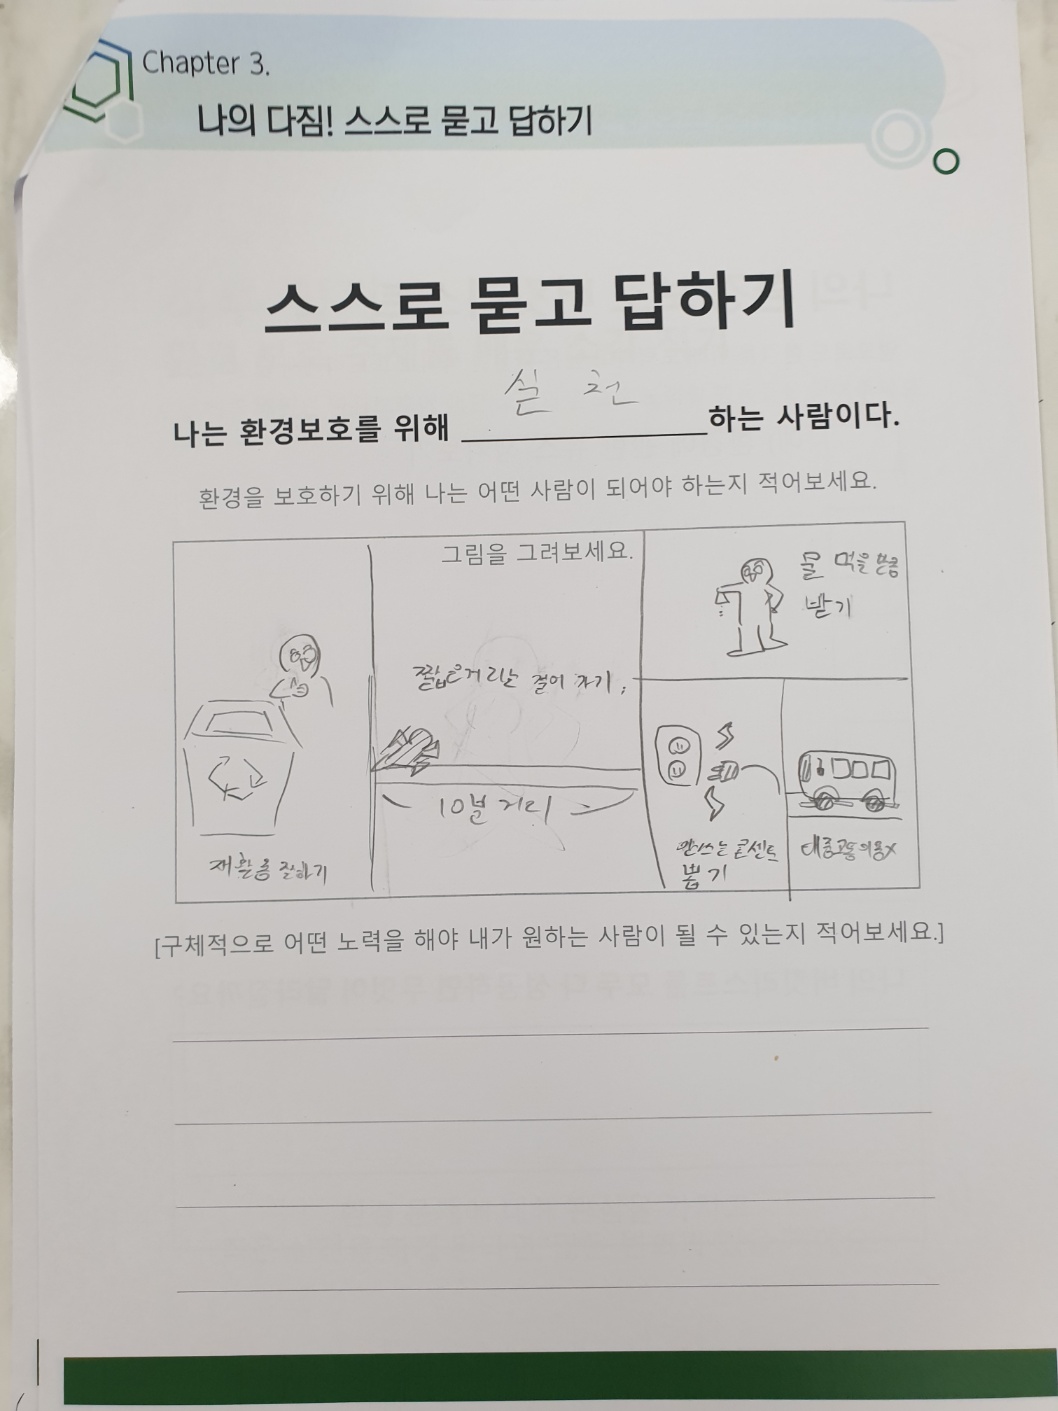 Chapter 3.
나의 다짐! 스스로 묻고 답하기
스스로 묻고 답하기
나는 환경보호를 위해 실천 하는 사람이다.
환경을 보호하기 위해 나는 어떤 사람이 되어야 하는지 적어보세요.
그림을 그려보세요.
물 먹을 만큼
받기
짧은거리는 걸어 가기
10분 거리
재활용 잘하기
안쓰는 콘센트
뽑기
대중교통 이용
[구체적으로 어떤 노력을 해야 내가 원하는 사람이 될 수 있는지 적어보세요.]